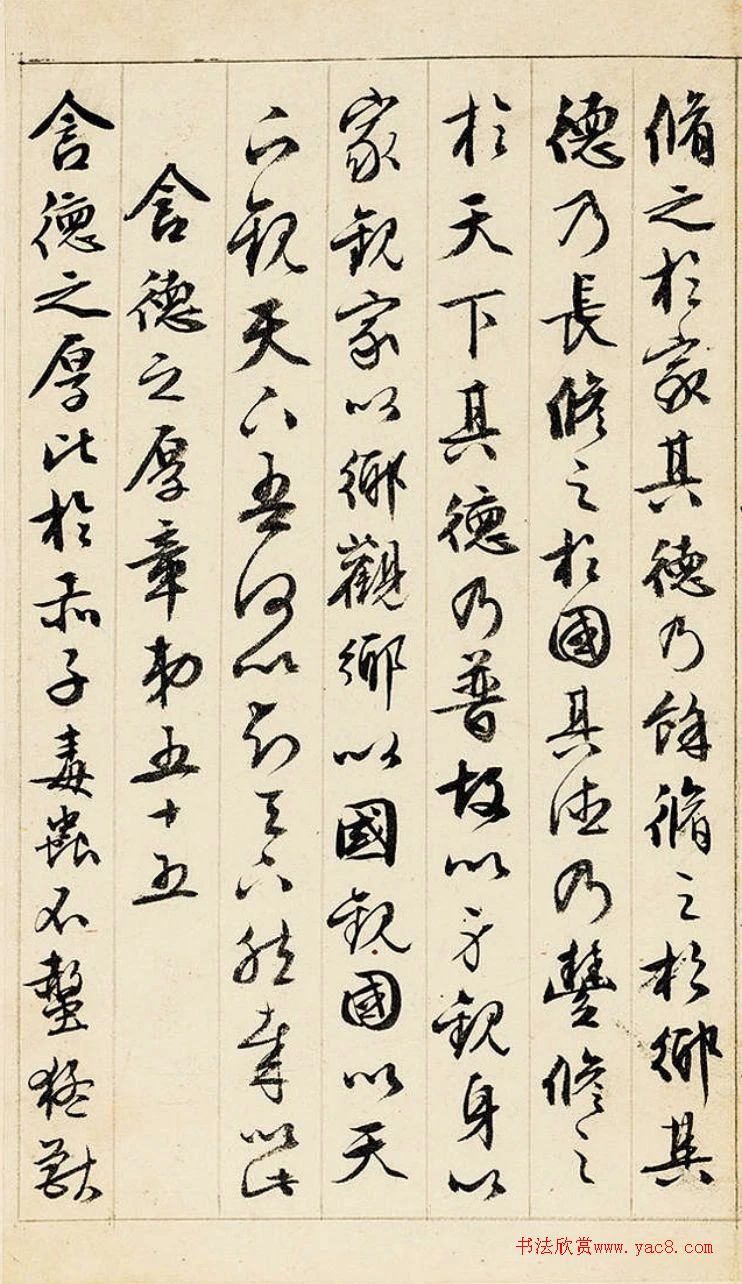 脩之於家其德乃餘脩之於鄉其
德乃長修之於國其德乃豐修之
於天下其德乃普故以身觀身以
家觀家以鄉觀鄉以國觀國以天
下觀天下吾何以知天下然哉以此
含德之厚章弟五十五
含德之厚比於赤子毒蟲不螫猛獸
书法欣赏www.yac8.com